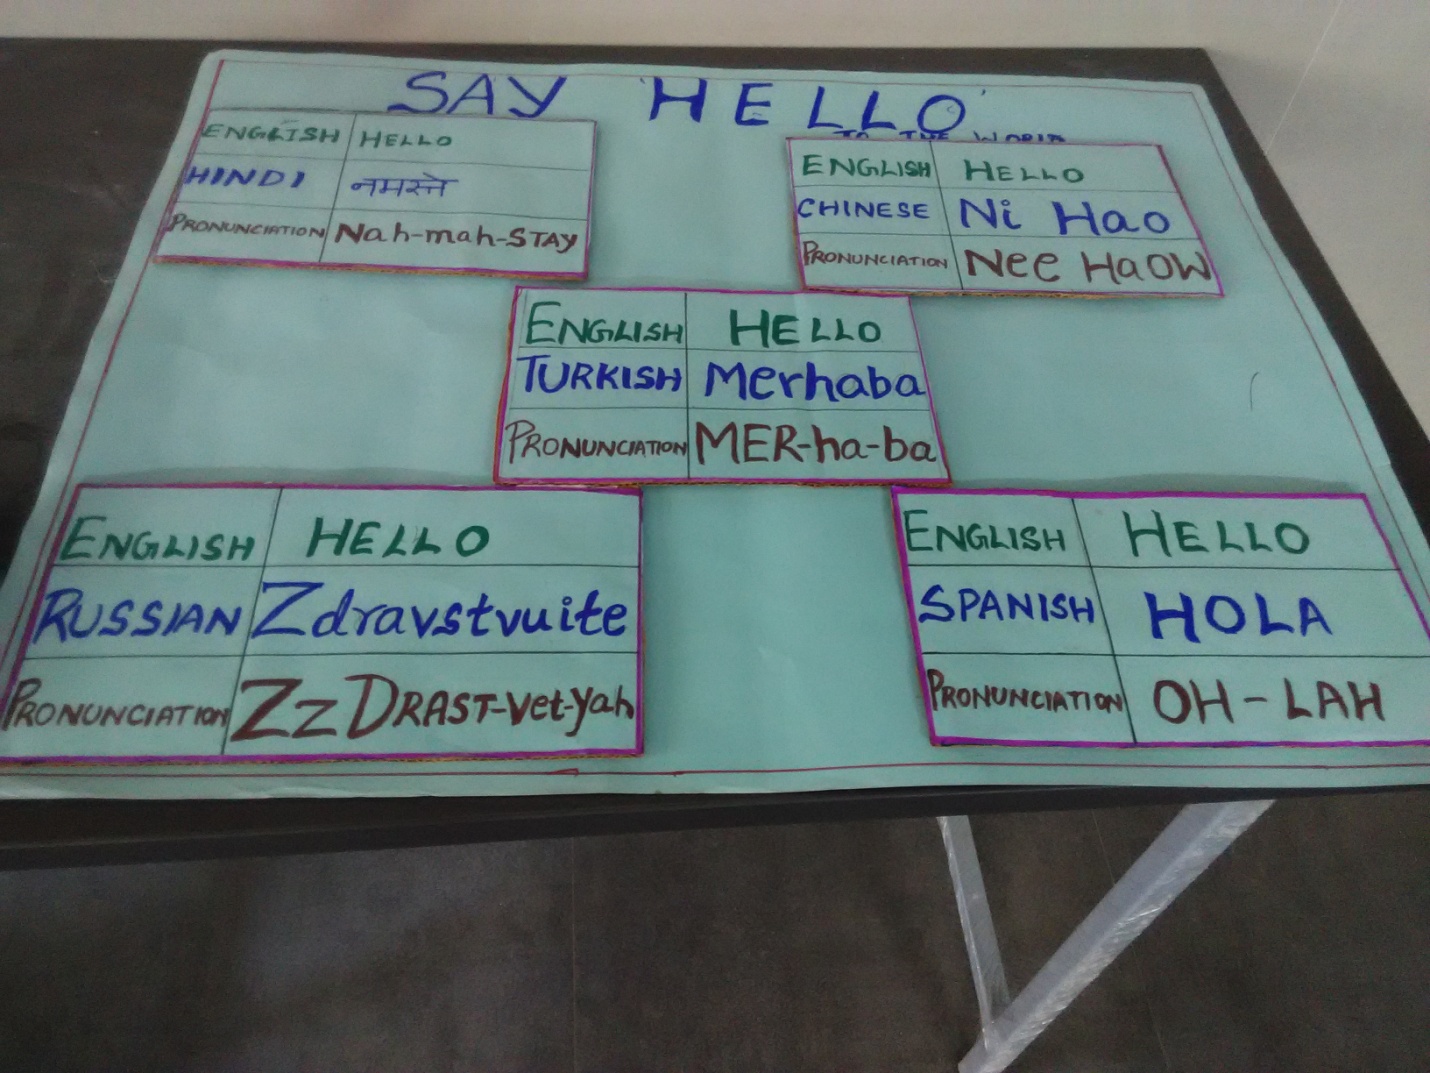 SAY 'HELLO'
TO THE WORLD
ENGLISH HELLO
HINDI नमस्ते
PRONUNCIATION Nah-mah-STAY
ENGLISH HELLO
CHINESE Ni Hao
PRONUNCIATION Nee HaOW
ENGLISH HELLO
TURKISH Merhaba
PRONUNCIATION MER-ha-ba
ENGLISH HELLO
RUSSIAN Zdravstvuite
PRONUNCIATION ZzDRAST-vet-yah
ENGLISH HELLO
SPANISH HOLA
PRONUNCIATION OH-LAH